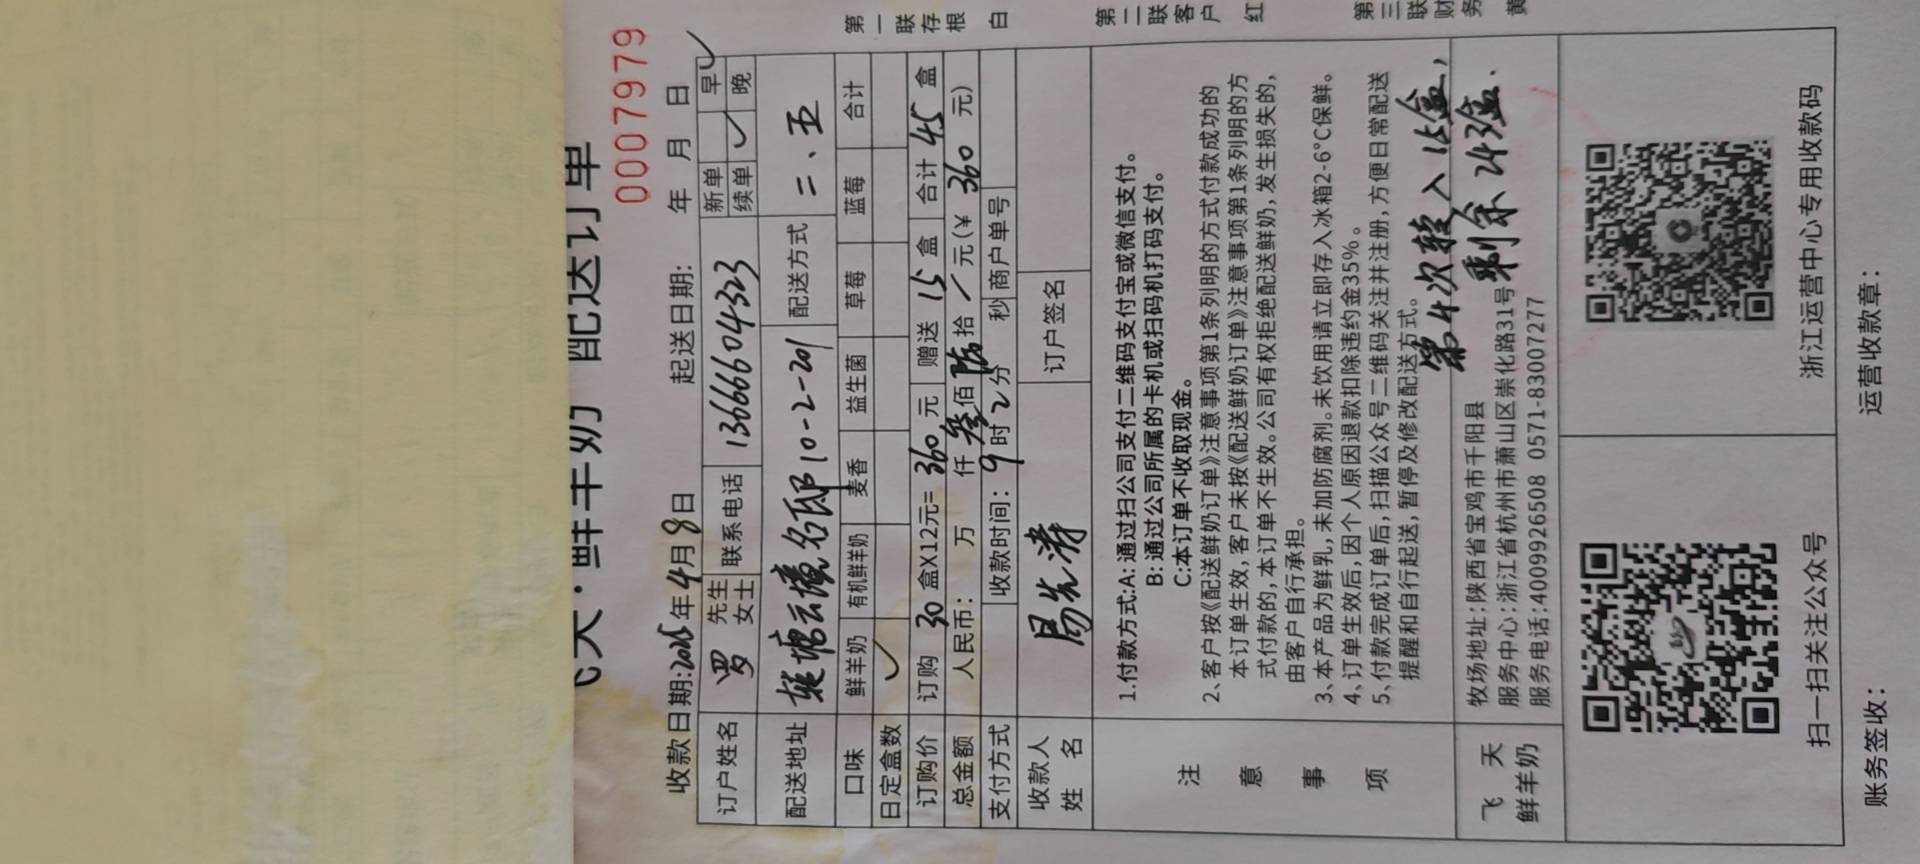 天·鲜羊奶 配送订单
0007979
收款日期: 年4月8日 起送日期: 年 月 日
订户姓名 罗 先生 女士 联系电话 13666604323 新单 续单 ✓ 早 晚 ✓
配送地址 云境名邸10-2-201 配送方式 二、五
口味 鲜羊奶 有机鲜羊奶 麦香 益生菌 草莓 蓝莓 合计
日定盒数 ✓
订购价 订购 30 盒X12元= 360 元 赠送 15 盒 合计 45 盒
总金额 人民币: 万 仟 叁 佰 陆 拾 / 元(¥ 360 元)
支付方式 收款时间: 9 时 2 分 秒 商户单号
收款人姓名 易先涛 订户签名
注意事项
1.付款方式:A: 通过扫公司支付二维码支付宝或微信支付。
B: 通过公司所属的卡机或扫码机打码支付。
C:本订单不收取现金。
2、客户按《配送鲜奶订单》注意事项第1条列明的方式付款成功的
本订单生效,客户未按《配送鲜奶订单》注意事项第1条列明的方
式付款的,本订单不生效。公司有权拒绝配送鲜奶,发生损失的,
由客户自行承担。
3、本产品为鲜乳,未加防腐剂。未饮用请立即存入冰箱2-6°C保鲜。
4、订单生效后,因个人原因退款扣除违约金35%。
5、付款完成订单后,扫描公众号二维码关注并注册,方便日常配送
提醒和自行起送,暂停及修改配送方式。
第4次转入 盒,
剩余 盒.
飞天鲜羊奶
牧场地址:陕西省宝鸡市千阳县
服务中心:浙江省杭州市萧山区崇化路31号
服务电话:4009926508 0571-83007277
扫一扫关注公众号
浙江运营中心专用收款码
账务签收:
运营收款章:
第一联存根 白
第二联客户 红
第三联财务 黄